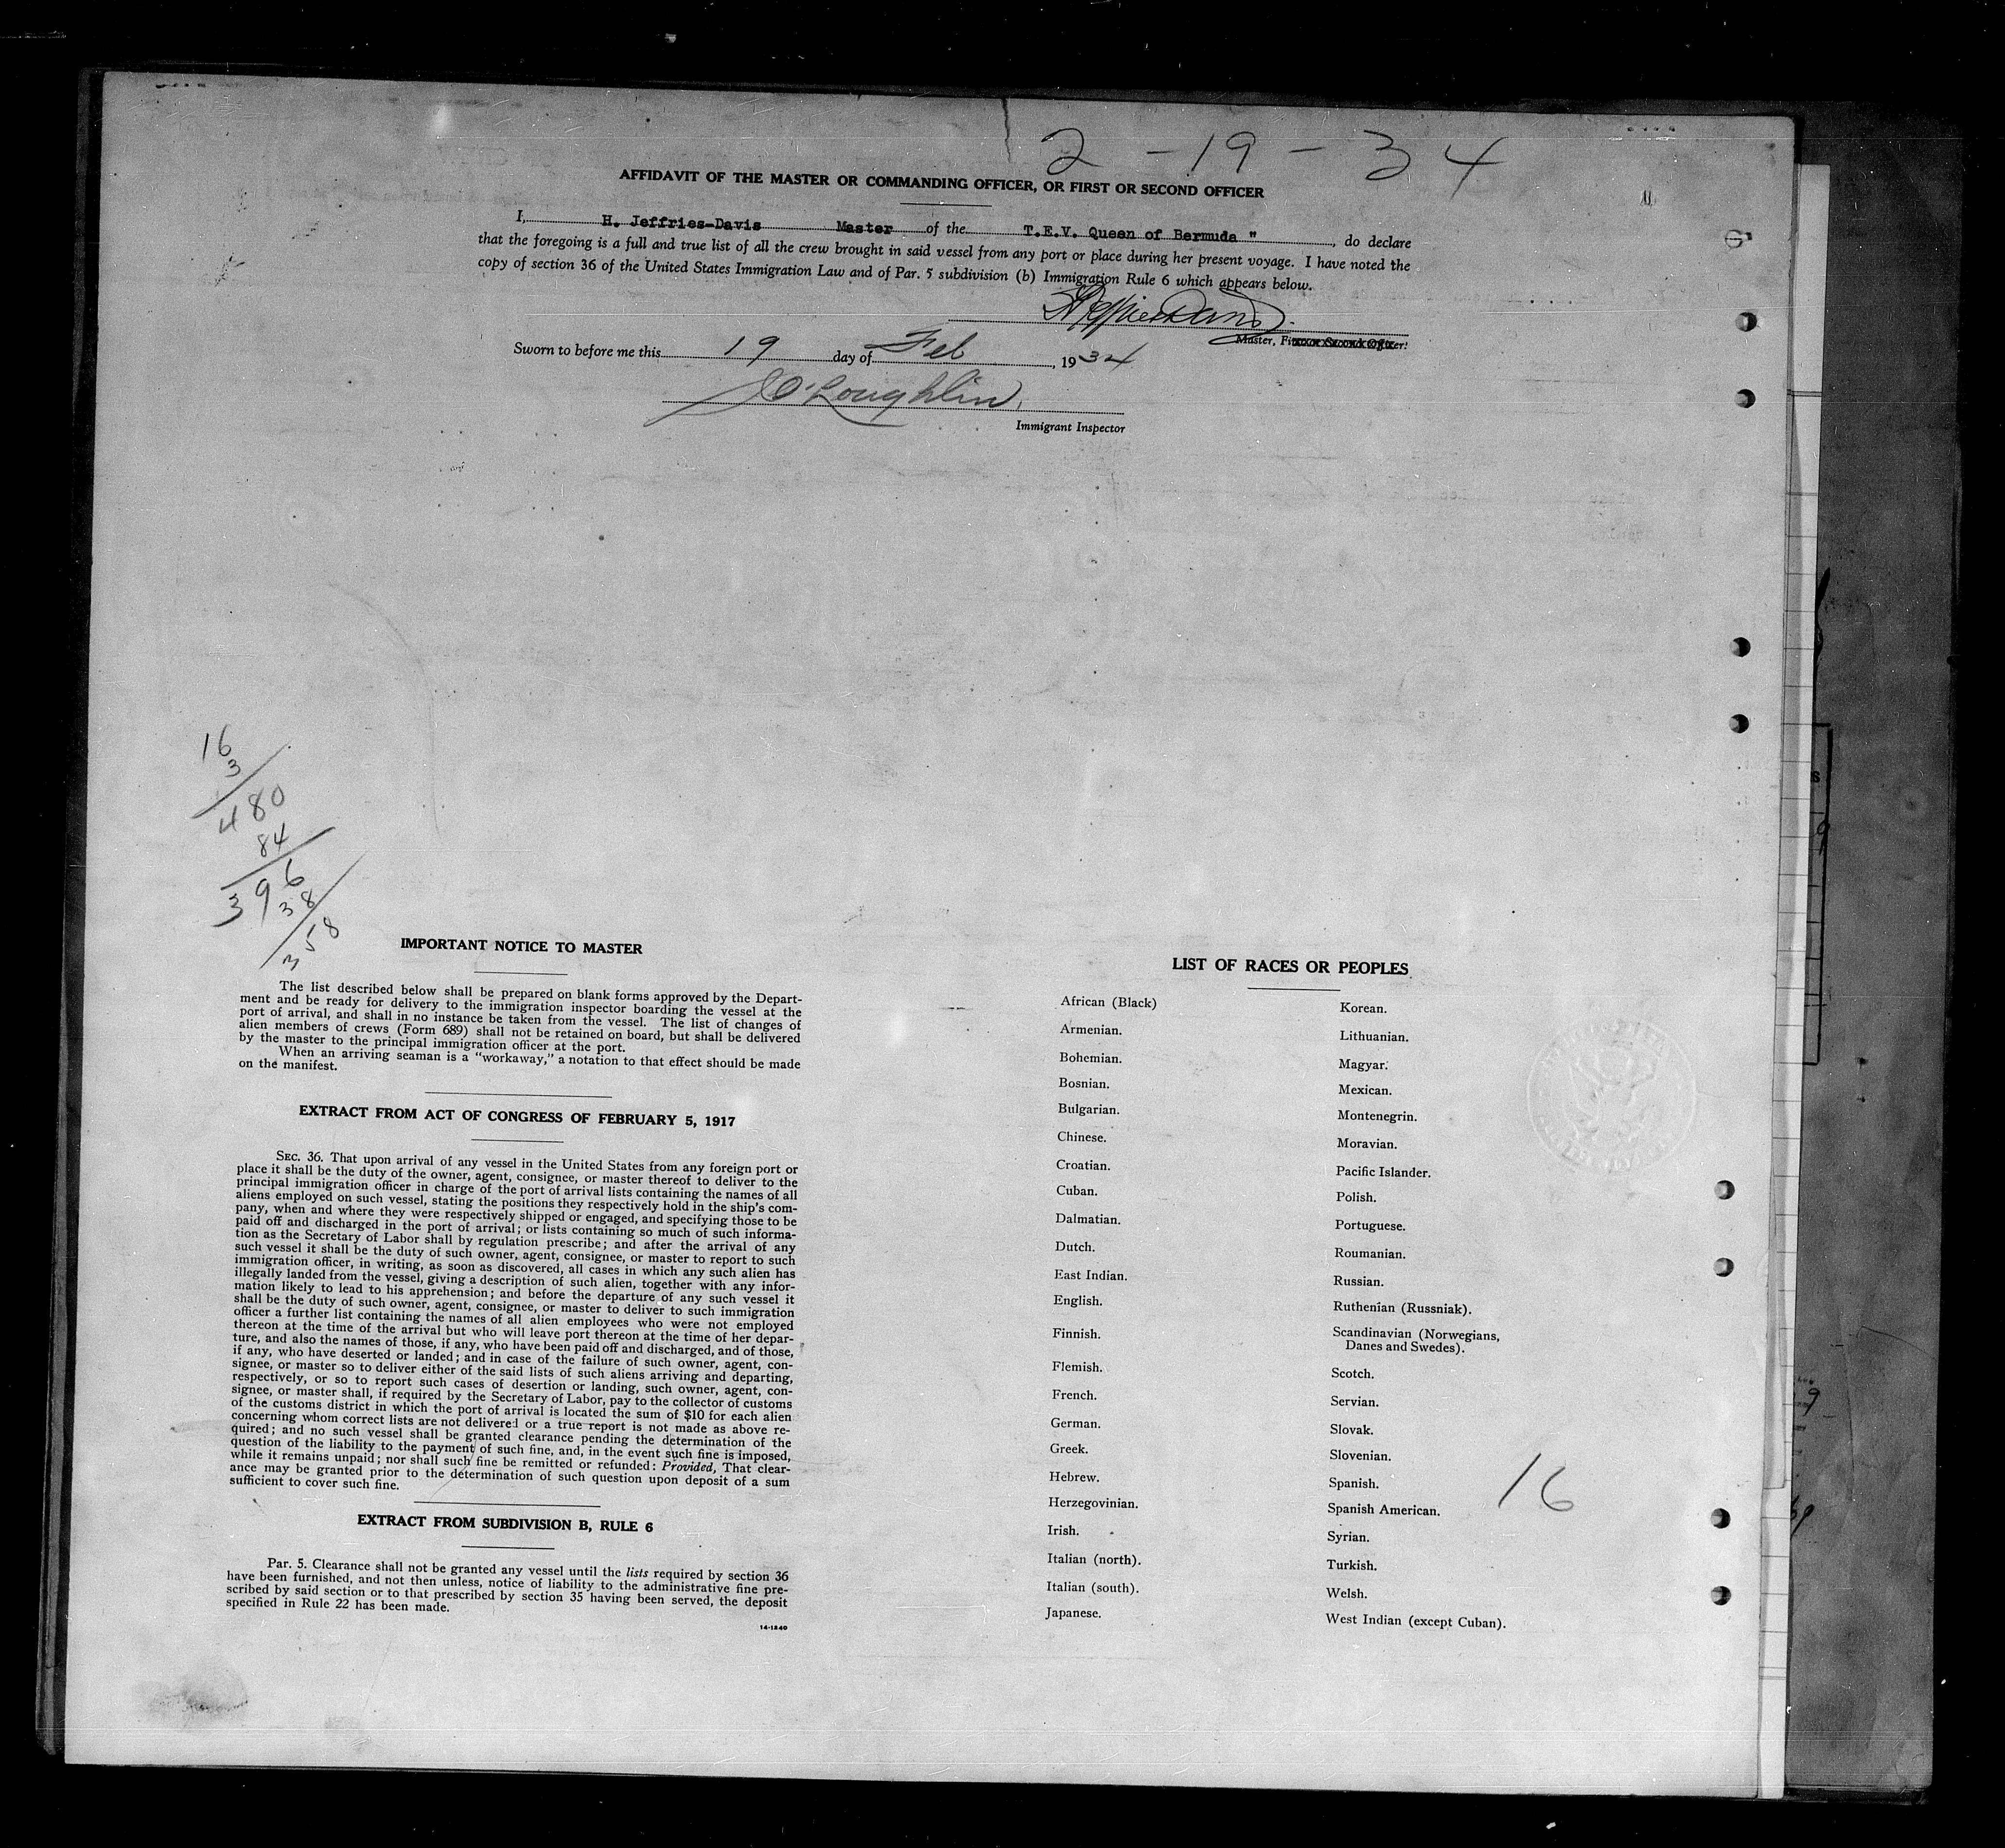 2 - 19 - 34
AFFIDAVIT OF THE MASTER OR COMMANDING OFFICER, OR FIRST OR SECOND OFFICER
I, H. Jeffries-Davis Master of the T.E.V. Queen of Bermuda ", do declare
that the foregoing is a full and true list of all the crew brought in said vessel from any port or place during her present voyage. I have noted the
copy of section 36 of the United States Immigration Law and of Par. 5 subdivision (b) Immigration Rule 6 which appears below.
Master, First or Second Officer.
Sworn to before me this 19 day of Feb, 1934
J O'Loughlin,
Immigrant Inspector
16
3
480
84
396
38
358
IMPORTANT NOTICE TO MASTER
The list described below shall be prepared on blank forms approved by the Depart-
ment and be ready for delivery to the immigration inspector boarding the vessel at the
port of arrival, and shall in no instance be taken from the vessel. The list of changes of
alien members of crews (Form 689) shall not be retained on board, but shall be delivered
by the master to the principal immigration officer at the port.
When an arriving seaman is a "workaway," a notation to that effect should be made
on the manifest.
EXTRACT FROM ACT OF CONGRESS OF FEBRUARY 5, 1917
SEC. 36. That upon arrival of any vessel in the United States from any foreign port or
place it shall be the duty of the owner, agent, consignee, or master thereof to deliver to the
principal immigration officer in charge of the port of arrival lists containing the names of all
aliens employed on such vessel, stating the positions they respectively hold in the ship's com-
pany, when and where they were respectively shipped or engaged, and specifying those to be
paid off and discharged in the port of arrival; or lists containing so much of such informa-
tion as the Secretary of Labor shall by regulation prescribe; and after the arrival of any
such vessel it shall be the duty of such owner, agent, consignee, or master to report to such
immigration officer, in writing, as soon as discovered, all cases in which any such alien has
illegally landed from the vessel, giving a description of such alien, together with any infor-
mation likely to lead to his apprehension; and before the departure of any such vessel it
shall be the duty of such owner, agent, consignee, or master to deliver to such immigration
officer a further list containing the names of all alien employees who were not employed
thereon at the time of the arrival but who will leave port thereon at the time of her depar-
ture, and also the names of those, if any, who have been paid off and discharged, and of those,
if any, who have deserted or landed; and in case of the failure of such owner, agent, con-
signee, or master so to deliver either of the said lists of such aliens arriving and departing,
respectively, or so to report such cases of desertion or landing, such owner, agent, con-
signee, or master shall, if required by the Secretary of Labor, pay to the collector of customs
of the customs district in which the port of arrival is located the sum of $10 for each alien
concerning whom correct lists are not delivered or a true report is not made as above re-
quired; and no such vessel shall be granted clearance pending the determination of the
question of the liability to the payment of such fine, and, in the event such fine is imposed,
while it remains unpaid; nor shall such fine be remitted or refunded: Provided, That clear-
ance may be granted prior to the determination of such question upon deposit of a sum
sufficient to cover such fine.
EXTRACT FROM SUBDIVISION B, RULE 6
Par. 5. Clearance shall not be granted any vessel until the lists required by section 36
have been furnished, and not then unless, notice of liability to the administrative fine pre-
scribed by said section or to that prescribed by section 35 having been served, the deposit
specified in Rule 22 has been made.
14-1240
LIST OF RACES OR PEOPLES
African (Black)
Armenian.
Bohemian.
Bosnian.
Bulgarian.
Chinese.
Croatian.
Cuban.
Dalmatian.
Dutch.
East Indian.
English.
Finnish.
Flemish.
French.
German.
Greek.
Hebrew.
Herzegovinian.
Irish.
Italian (north).
Italian (south).
Japanese.
Korean.
Lithuanian.
Magyar.
Mexican.
Montenegrin.
Moravian.
Pacific Islander.
Polish.
Portuguese.
Roumanian.
Russian.
Ruthenian (Russniak).
Scandinavian (Norwegians,
Danes and Swedes).
Scotch.
Servian.
Slovak.
Slovenian.
Spanish.
Spanish American.
Syrian.
Turkish.
Welsh.
West Indian (except Cuban).
16